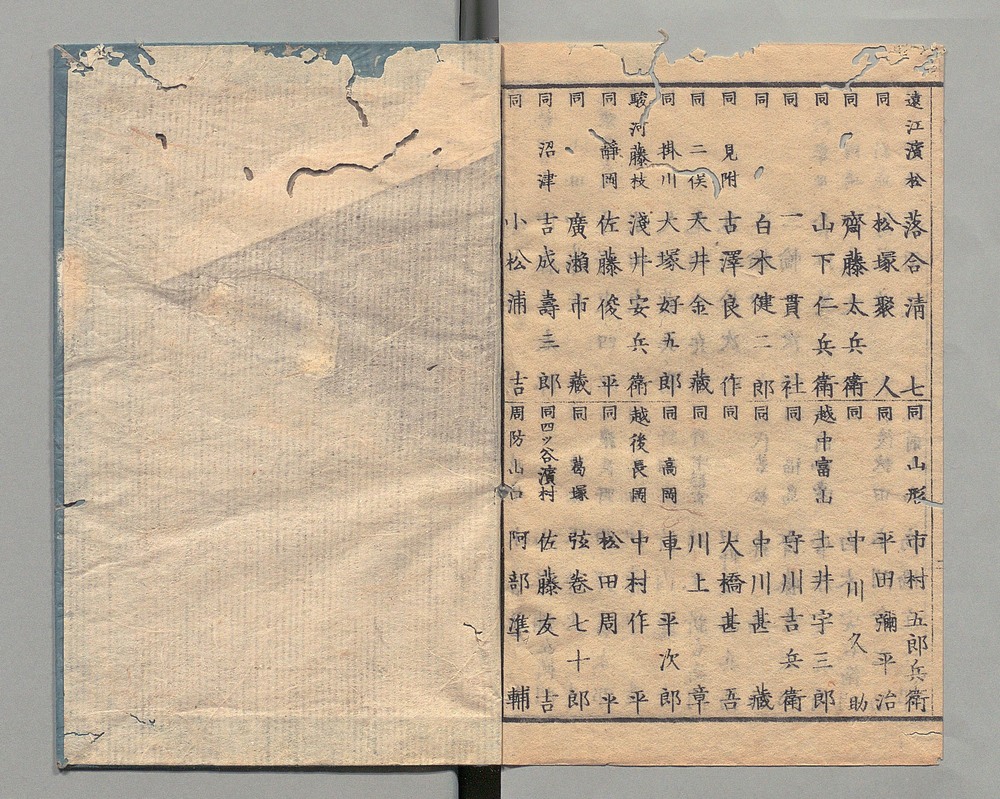 遠江濱松 落合清七
同 松塚聚人
同 齊藤太兵衛
同 山下仁兵衛
同 一貫社
同 白木健二郎
同 見附 古澤良作
同 二俣 天井金藏
同 掛川 大塚好五郎
駿河藤枝 淺井安兵衛
同 靜岡 佐藤俊平
同 廣瀬市藏
同 沼津 吉成壽三郎
同 小松浦吉
同 山形 市村五郎兵衛
同 平田彌平治
同 中川久助
越中富山 土井宇三郎
同 守川吉兵衛
同 中川甚藏
同 大橋甚吾
同 川上章
同 高岡 車平次郎
越後長岡 中村作平
同 松田周平
同 葛塚 弦巻七十郎
同四ッ谷濱村 佐藤友吉
周防山口 阿部準輔